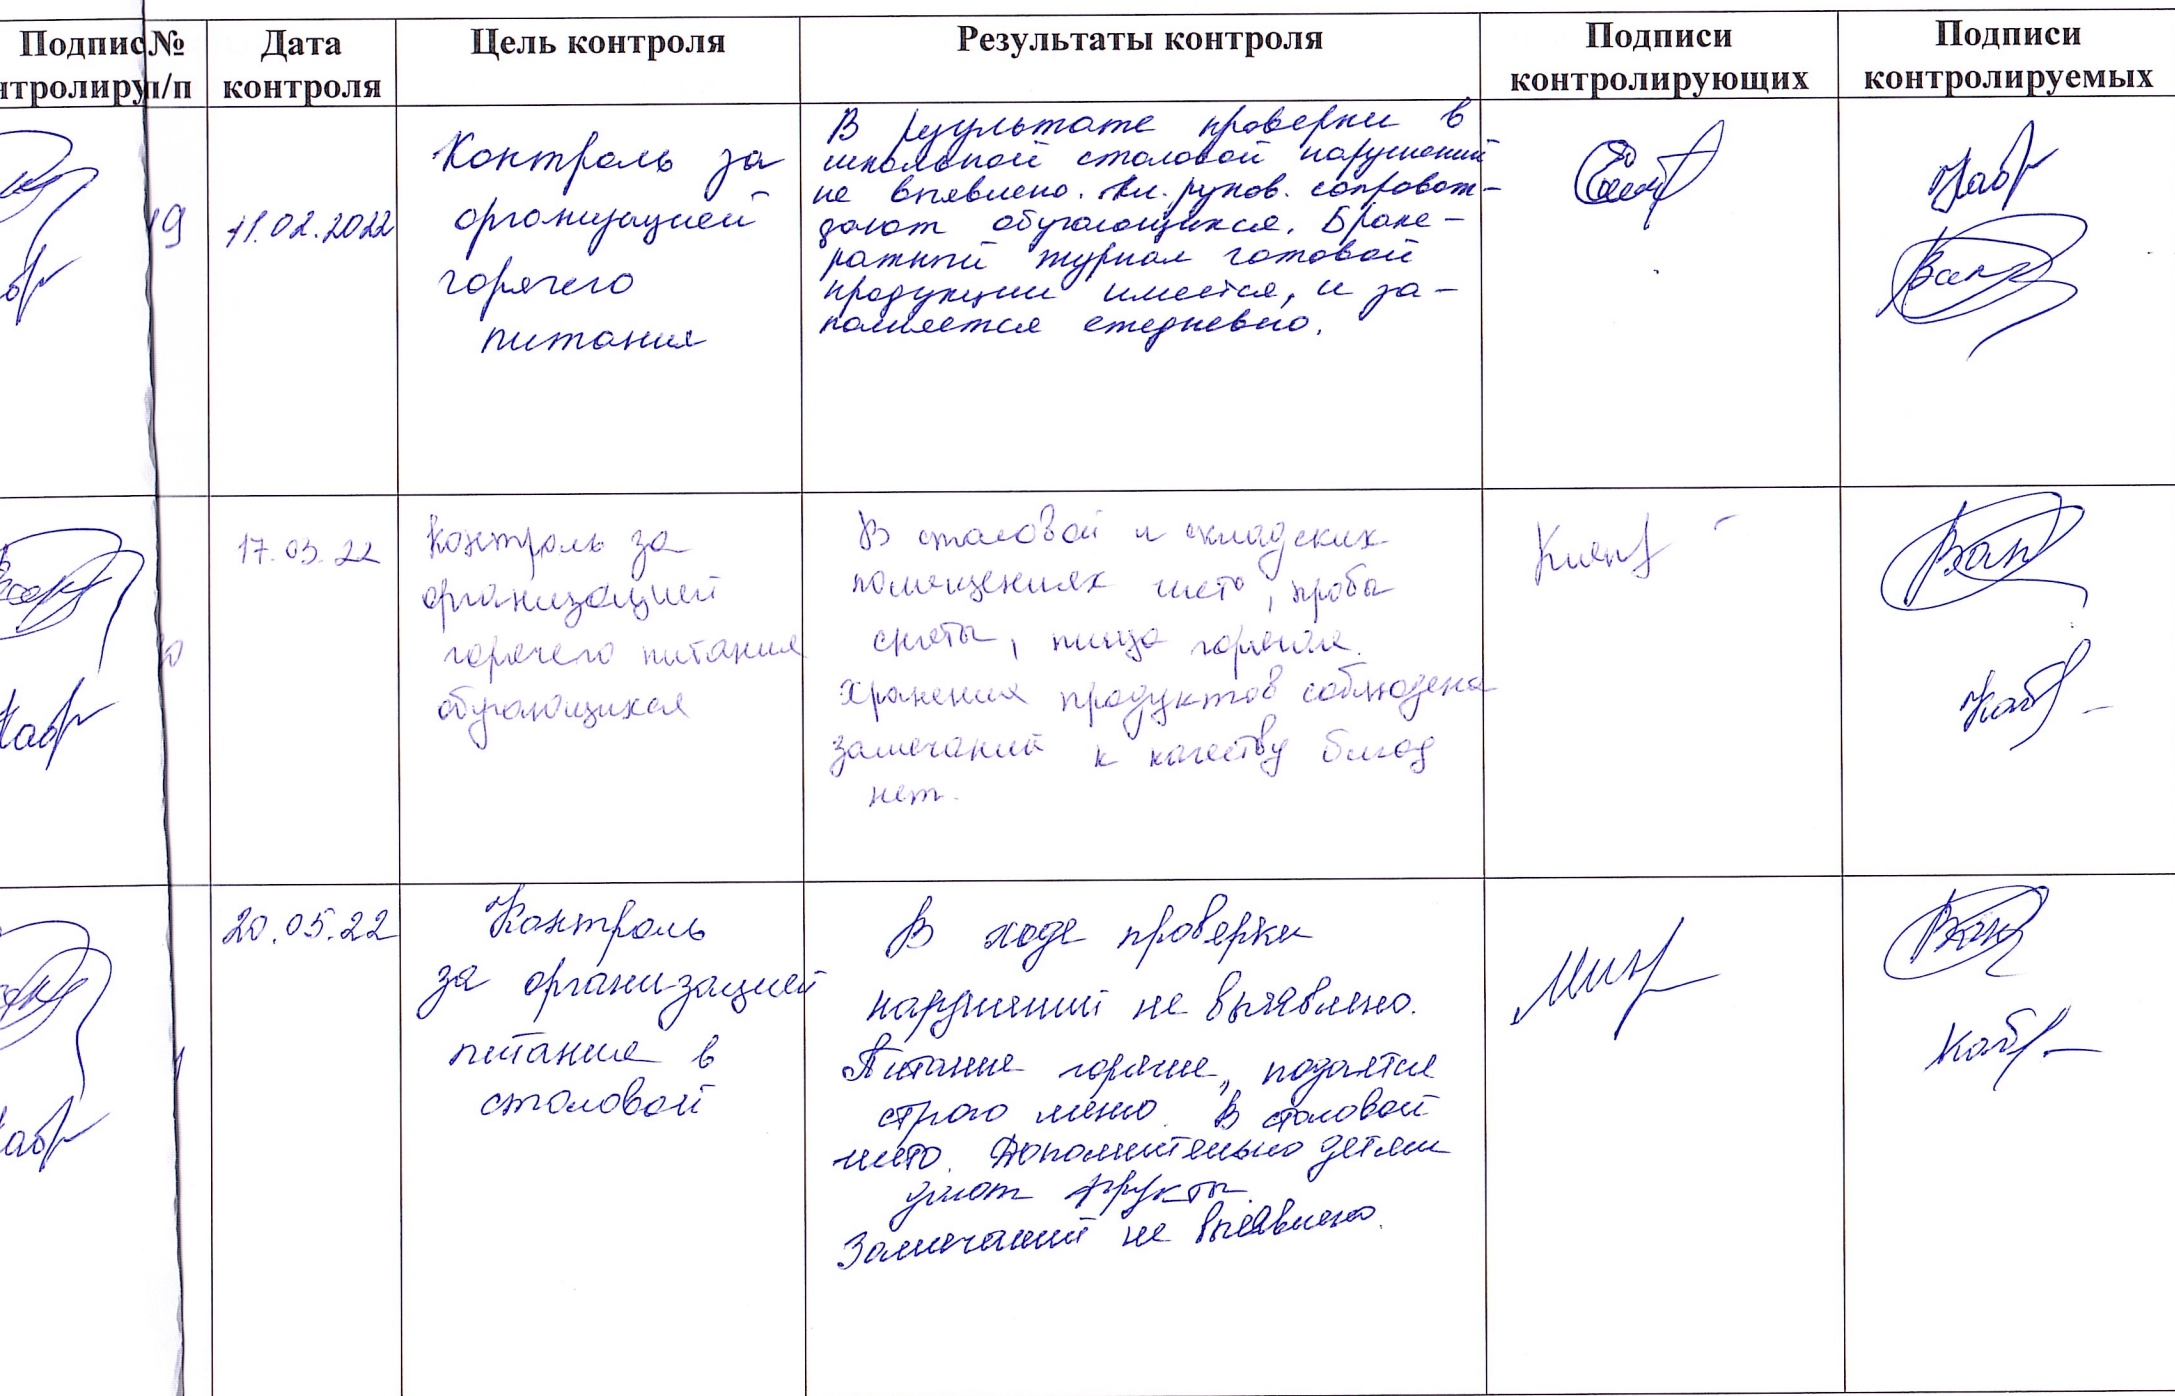 Подпис № Дата Цель контроля Результаты контроля Подписи Подписи
нтролиру п/п контроля контролирующих контролируемых
19 11.02.2022
Контроль за
организацией
горячего
питания
В результате проверки в
школьной столовой нарушений
не выявлено. Кл. руков. сопровож-
дают обучающихся. Браке-
ражный журнал готовой
продукции имеется, и за-
полняется ежедневно.
17.03.22
Контроль за
организацией
горячего питания
обучающихся
В столовой и складских
помещениях чисто, проба
снята, пища горячая.
Хранения продуктов соблюдена
замечаний к качеству блюд
нет.
20.05.22
Контроль
за организацией
питания в
столовой
В ходе проверки
нарушений не выявлено.
Питание горячие, подаётся
строго меню. В столовой
чисто. Дополнительно детям
дают фрукты.
Замечаний не выявлено.